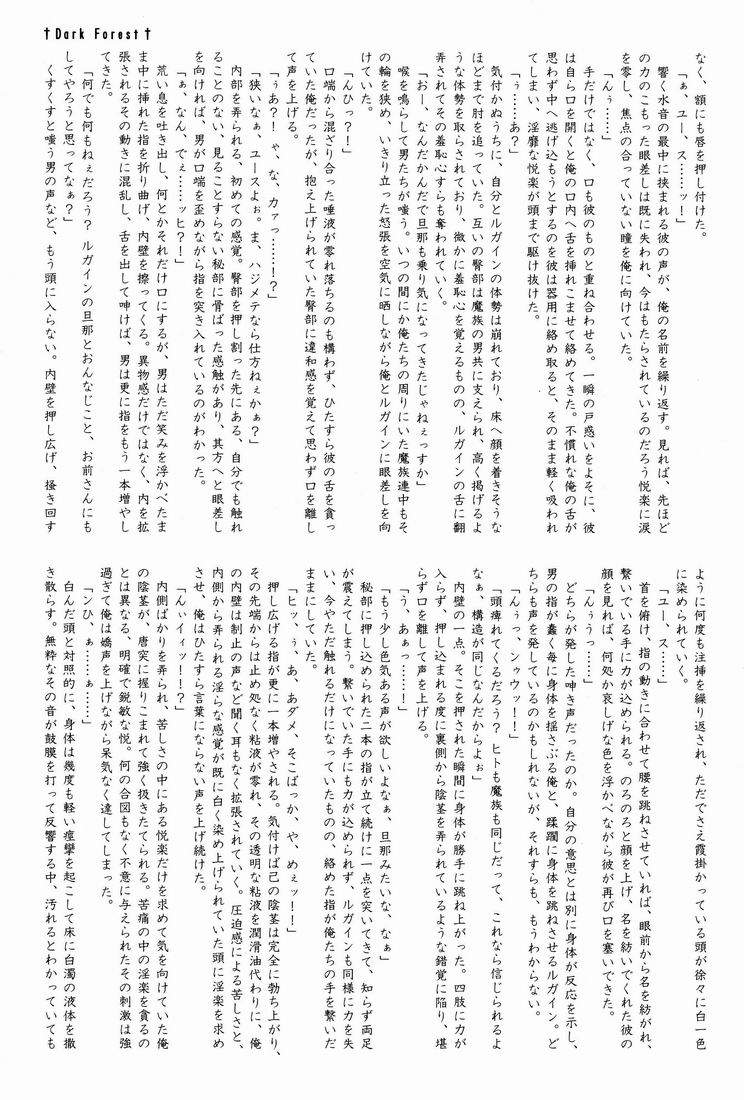 †Dark Forest†
なく、額にも唇を押し付けた。
「ぁ、ユー、ス……ッ！」
響く水音の最中に挟まれる彼の声が、俺の名前を繰り返す。見れば、先ほど
の力のこもった眼差しは既に失われ、今はもたらされているのだろう悦楽に涙
を零し、焦点の合っていない瞳を俺に向けていた。
「んぅ……」
手だけではなく、口も彼のものと重ね合わせる。一瞬の戸惑いをよそに、彼
は自ら口を開くと俺の口内へ舌を挿れこませて絡めてきた。不慣れな俺の舌が
思わず中へ逃げ込もうとするのを彼は器用に絡め取ると、そのまま軽く吸われ
てしまい、淫靡な悦楽が頭まで駆け抜けた。
「ぅ……あ？」
気付かぬうちに、自分とルガインの体勢は崩れており、床へ顔を着きそうな
ほどまで肘を追っていた。互いの臀部は魔族の男共に支えられ、高く掲げるよ
うな体勢を取らされており、微かに羞恥心を覚えるものの、ルガインの舌に翻
弄されてその羞恥心すらも奪われていく。
「おー、なんだかんだで旦那も乗り気になってきたじゃねぇっすか」
喉を鳴らして男たちが嗤う。いつの間にか俺たちの周りにいた魔族連中もそ
の輪を狭め、いきり立った怒張を空気に晒しながら俺とルガインに眼差しを向
けていた。
「んひっ？！」
口端から混ざり合った唾液が零れ落ちるのも構わず、ひたすら彼の舌を貪っ
ていた俺だったが、抱え上げられていた臀部に違和感を覚えて思わず口を離し
て声を上げる。
「ぅあ？！　ゃ、な、カァっ……！？」
「狭いなぁ、ユースよぉ。ま、ハジメテなら仕方ねぇかぁ？」
内部を弄られる、初めての感覚。臀部を押し割った先にある、自分でも触れ
ることのない、見ることすらない秘部に骨ばった感触があり、其方へと眼差し
を向ければ、男が口端を歪めながら指を突き入れているのがわかった。
「ぁ、なん、でぇ……ッヒ？！」
荒い息を吐き出し、何とかそれだけ口にするが、男はただ笑みを浮かべたま
ま中に挿れた指を折り曲げ、内壁を擦ってくる。異物感だけではなく、内を拡
張されるその動きに混乱し、舌を出して呻けば、男は更に指をもう一本増やし
てきた。
「何でも何もねぇだろう？　ルガインの旦那とおんなじこと、お前さんにも
してやろうと思ってなぁ？」
くすくすと嗤う男の声など、もう頭に入らない。内壁を押し広げ、掻き回す
ように何度も注挿を繰り返され、ただでさえ霞掛かっている頭が徐々に白一色
に染められていく。
「ユー、ス……」
首を俯け、指の動きに合わせて腰を跳ねさせていれば、眼前から名を紡がれ、
繋いでいる手に力が込められる。のろのろと顔を上げ、名を紡いでくれた彼の
顔を見れば、何処か哀しげな色を浮かべながら彼が再び口を塞いできた。
「んぅうっ……」
どちらが発した呻き声だったのか。自分の意思とは別に身体が反応を示し、
男の指が蠢く毎に身体を揺さぶる俺と、蹂躙に身体を跳ねさせるルガイン。ど
ちらも声を発しているのかもしれないが、それすらも、もうわからない。
「んぅっ、ンゥウッ！！」
「頭痺れてくるだろう？　ヒトも魔族も同じだって、これなら信じられるよ
なぁ、構造が同じなんだからよぉ」
内壁の一点。そこを押された瞬間に身体が勝手に跳ね上がった。四肢に力が
入らず、押し込まれる度に裏側から陰茎を弄られているような錯覚に陥り、堪
らず口を離して声を上げる。
「う、あぁっ……！」
「もう少し色気ある声が欲しいよなぁ、旦那みたいな、なぁ」
秘部に押し込められた二本の指が立て続けに一点を突いてきて、知らず両足
が震えてしまう。繋いでいた手にも力が込められず、ルガインも同様に力を失
い、今やただ触れるだけになっていたものの、絡めた指が俺たちの手を繋いだ
ままにしていた。
「ヒッ、ぅ、あ、あダメ、そこばっか、や、めぇッ！！」
押し広げる指が更に一本増やされる。気付けば己の陰茎は完全に勃ち上がり、
その先端からは止め処なく粘液が零れ、その透明な粘液を潤滑油代わりに、俺
の内壁は制止の声など聞く耳もなく拡張されていく。圧迫感による苦しさと、
内側から弄られる淫らな感覚が既に白く染め上げられていた頭に淫楽を求め
させ、俺はひたすら言葉にならない声を上げ続けた。
「んぃイィッ！！？」
内側ばかりを弄られ、苦しさの中にある悦楽だけを求めて気を向けていた俺
の陰茎が、唐突に握りこまれて強く扱きたてられる。苦痛の中の淫楽を貪るの
とは異なる、明確で鋭敏な悦。何の合図もなく不意に与えられたその刺激は強
過ぎて俺は嬌声を上げながら呆気なく達してしまった。
「ンひ、ぁ……ぁ……」
白んだ頭と対照的に、身体は幾度も軽い痙攣を起こして床に白濁の液体を撒
き散らす。無粋なその音が鼓膜を打って反響する中、汚れるとわかっていても